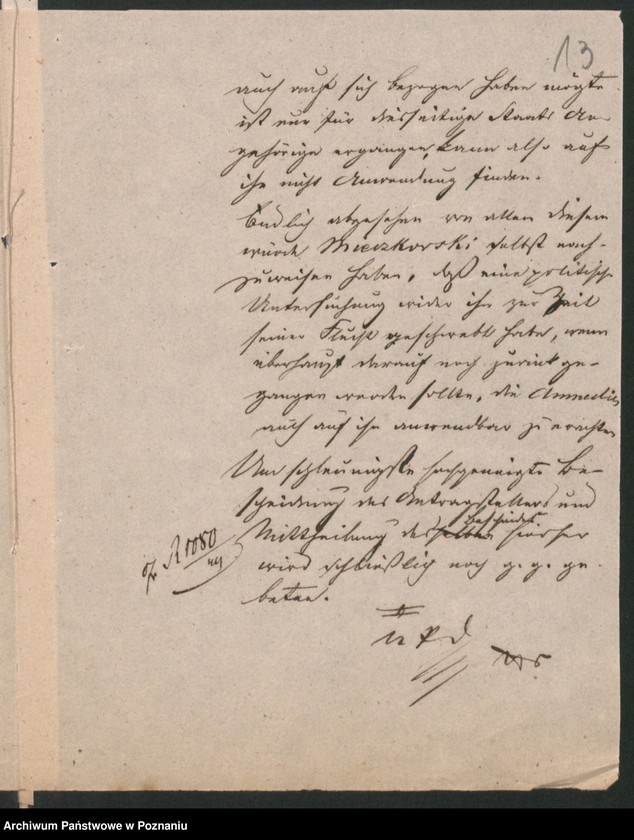 13
auch auf sich bezogen haben mögte
ist nur für diesseitige Staats An-
gehörige ergangen, kann also auf
ihn nicht Anwendung finden.
Endlich abgesehen von allen diesem
würde Mieczkorski selbst nach-
zuweisen haben, daß eine politische
Untersuchung wider ihn zur Zeit
seiner Flucht geschwebt habe, wenn
überhaupt darauf noch zurück ge-
gangen werden sollte, die Amnestie
auch auf ihn anwendbar zu erachten
Um schleunigste hochgeneigte Be-
scheidung des Antragstellers und
Mittheilung des Bescheides hierher
wird schließlich noch g. g. ge-
beten.
1080
Archiwum Państwowe w Poznaniu